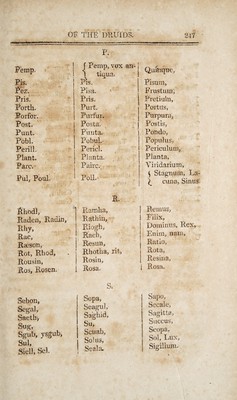 OF THE DRUIDS. 247
P.
Pemp. { Pemp, vox an- Quinque.
tiqua.
Pis. Pis. Pisum,
Pez. Pisa. Frustum,
Pris. Pris. Pretium,
Porth. Port. Portus,
Porfor. Purfur. Purpura,
Post. Posta. Postis,
Punt. Punta. Pondo,
Pobl. Pobul. Populus,
Perill. Pericl. Periculum,
Plant. Planta. Planta,
Parc. Pairc. Viridarium,
Pul, Poul. Poll. { Stagnum, La-
cuna, Sinus
R.
Rhodl, Ramha, Remus,
Raden, Radin, Rathin, Filix,
Rhy, Riogh, Dominus, Rex,
Rac, Rach, Enim, nam,
Ræson, Resun, Ratio,
Rot, Rhod, Rhotha, rit, Rota,
Rousin, Rosin, Resina,
Ros, Rosen. Rosa. Rosa.
S.
Sebon, Sopa, Sapo,
Segal, Seagul, Secale,
Saeth, Saghid, Sagitta,
Sug, Su, Succus,
Sgub, ysgub, Scuab, Scopa,
Sul, Solus, Sol, Lux,
Siell, Sel. Seala. Sigillum.